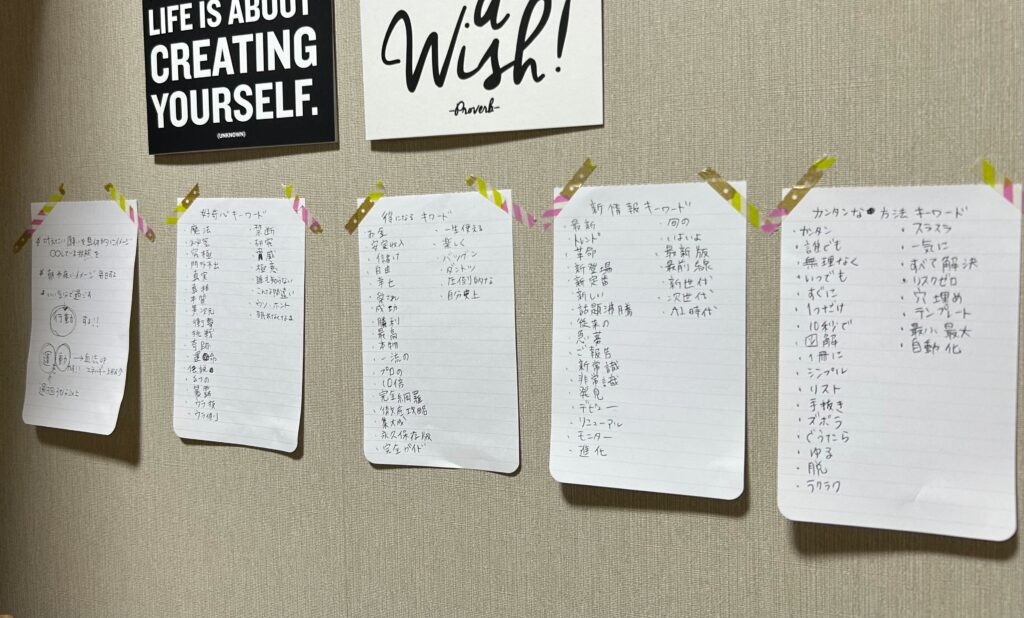 LIFE IS ABOUT
CREATING
YOURSELF.
(UNKNOWN)
a
Wish!
-Proverb-
○○している状態を
行動
運
動
好奇心キーワード
・魔法
・秘密
・究極
・門外不出
・真実
・真相
・本質
・異次元
・衝撃
・挑戦
・奇跡
・運命
・伝説の
・5つの
・暴露
・ウラ技
・禁断
・研究
・脅威
・極意
・誰も知らない
・こんな間違い
・ウソ・ホント
・眠れなくなる
得になるキーワード
・お金
・安定収入
・儲け
・自由
・幸せ
・成功
・勝利
・最高
・本物
・一流の
・プロの
・10倍
・完全網羅
・徹底攻略
・集大成
・永久保存版
・完全ガイド
・一生使える
・楽しく
・バツグン
・ダントツ
・圧倒的な
・自分史上
新情報キーワード
・最新
・トレンド
・革命
・新登場
・新定番
・新しい
・話題沸騰
・従来の
・急募
・ご報告
・新常識
・非常識
・発見
・デビュー
・リニューアル
・モニター
・進化
・旬の
・いよいよ
・最新版
・最前線
・新世代
・次世代
・AI時代
カンタンな 方法キーワード
・カンタン
・誰でも
・無理なく
・いつでも
・すぐに
・1つだけ
・10秒で
・図解
・1冊に
・シンプル
・リスト
・手抜き
・ズボラ
・ぐうたら
・ゆる
・脱
・ラクラク
・スラスラ
・一気に
・すべて解決
・リスクゼロ
・穴埋め
・テンプレート
・最小最大
・自動化